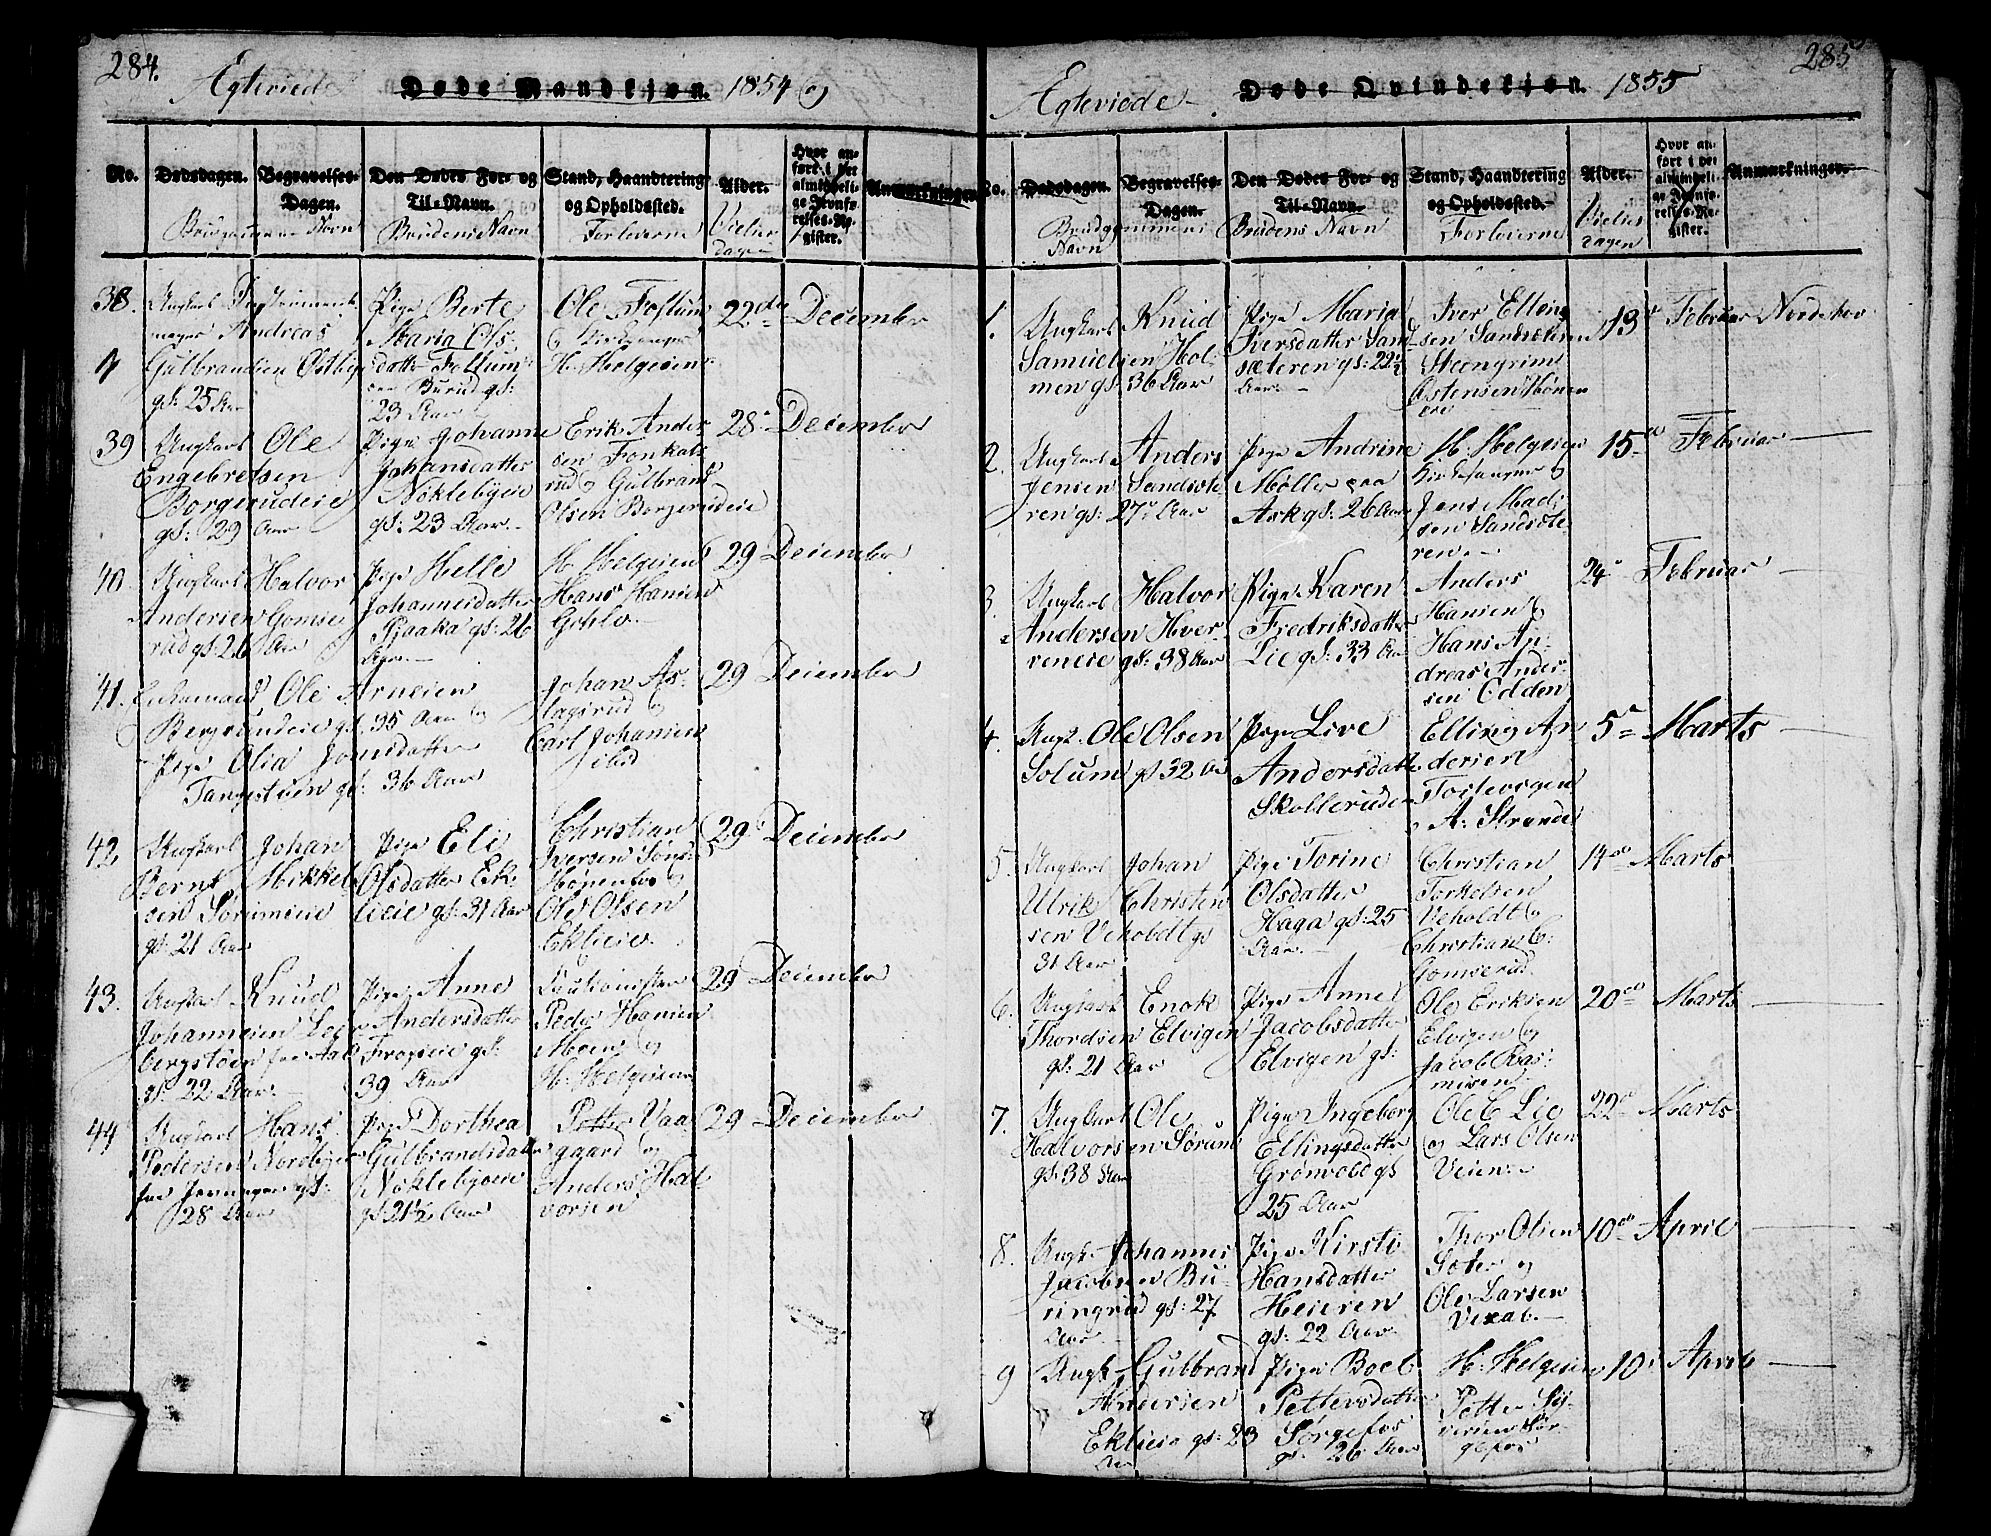 284.
Ægteviede
Døde Mandkjøn.
1854 og
No.
Dødsdagen.
Begravelses-
Dagen.
Den Dødes For- og
Til-Navn.
Stand, Haandtering
og Opholdssted.
Alder.
Hvor an-
ført i det
almindeli-
ge Jevnfø-
relses-Re-
gister.
Anmærkninger.
Brudgommens Navn
Brudens Navn
Forloverne
Vielses
dagen
38.
Ungkarl
Andreas
Gulbrandsen Østbye
gl: 25 Aar
Pige Berte
Maria Ols-
datter Follum
gl:
23 Aar
Ole Follum
og Kirkesanger
H. Helgesen
22de December
39
Ungkarl Ole
Engebretsen
Borgerudeie
gl: 29 Aar
Pige Johanne
Johansdatter
Nøklebyeie
gl: 23 Aar.
Erik Ander-
sen
rud og Gulbrand
Olsen Borgerudeie
28 December
40
Ungkarl Halvor
Andersen Gomse-
rud gl: 26 Aar
Pige Helle
Johannesdatter
gl: 26
Aar.
H. Helgesen
Hans Hansen
29 December
41.
Enkemand Ole Arnesen
Bergsundeie gl. 35 Aar og
Pige Olia Jonsdatter
Tangestuen gl. 36 Aar
Johan As-
lagsrud og
Carl Johansen
ibid
29 December
42
Ungkarl Johan
Bernt Mikkel-
sen Sørumeie
gl. 21 Aar
Pige Eli
Olsdatter Ek-
lieie gl: 31 Aar
Christian
Iversen Sønd-
Hønenbo og
Ole Olsen
Eklieie
29 December
43.
Ungkarl Knud
Johannesen
fra
gl. 22 Aar.
Pige Anne
Andersdatter
gl:
39 Aar
Peder Hansen
Moen og
H. Helgesen
29 December
44
Ungkarl Hans
Pedersen Nordbye
fra Jevnager gl:
28 Aar
Pige Dorthea
Gulbrandsdatter
Nøklebyeie
gl: 21½ Aar
Petter Vaa-
gaard og
Anders Hal-
vorsen
29 December
285
Ægteviede
Døde Qvindekjøn.
1855
No.
Dødsdagen.
Begravelses-
Dagen.
Den Dødes For- og
Til-Navn.
Stand, Haandtering
og Opholdssted.
Alder.
Hvor an-
ført i det
almindeli-
ge Jevnfø-
relses-Re-
gister.
Anmærkninger.
Brudgommens
Navn
Brudens Navn
Forloverne
Vielses
dagen
1.
Ungkarl Knud
Samuelsen Hol-
men gl. 36 Aar
Pige Maria
Iversdatter Sand-
sæteren gl: 22½
Aar.
Iver Elling-
sen Sandsæteren
Steengrim
Østensen Hønen
13de Februar Norderhov
2.
Ungkarl Anders
Jensen Sandsæte-
ren gl: 27 Aar
Pige Andrine
Møller paa
Ask gl: 26 Aar
H. Helgesen
Kirkesanger og
Jens Mad-
sen Sandsæte-
ren.
15de Februar
3
Ungkarl Halvor
Andersen Hver-
veneie gl: 38 Aar
Pige Karen
Fredriksdatter
Lie gl: 33 Aar
Anders
Hansen og
Hans An-
dreas Ander-
sen Odden
24 Februar
4.
Ungk. Ole Olsen
Solum gl 32 Aar
Pige Live
Andersdatter
Skollerud
Elling An-
dersen
og A: Strande
5te Marts
5.
Ungkarl Johan
Ulrik Christen-
sen Veholdt gl
31 Aar
Pige Torine
Olsdatter
Haga gl: 25
Aar.
Christian
Torkelsen
Veholdt og
Christian C.
Gomserud
14de Marts
6.
Ungkarl Enok
Thordsen Elvigen
gl. 21 Aar
Pige Anne
Jacobsdatter
Elvigen gl:
Ole Eriksen
Elvigen og
Jacob Ras-
musen
20de Marts
7.
Ungkarl Ole
Halvorsen Sørum
gl. 38 Aar
Pige Ingeborg
Ellingsdatter
Grønvold gl
25 Aar
Ole C Lie
og Lars Olsen
Veien
22de Marts
8.
Ungk. Johannes
Jacobsen Bu-
ringrud gl: 27
Aar
Pige Kirsti
Hansdatter
Heieren
gl: 22 Aar
Thor Olsen
Sæter og
Ole Larsen
Vexal.
10de April
9
Ungk Gulbrand
Andersen
Eklieie gl: 23
Aar
Pige Boel
Pettersdatter
Sørgefos
gl: 26 Aar
H: Helgesen
Petter
Sør-
gefos
10 April